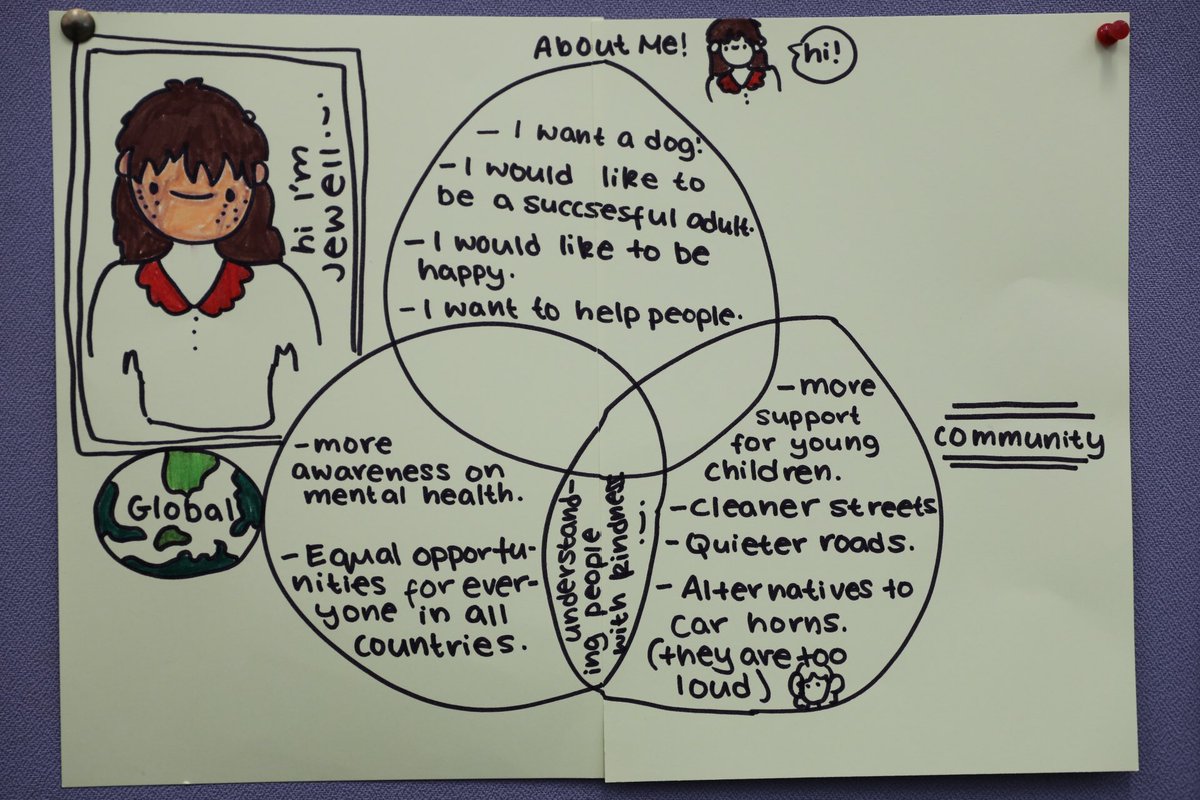 About Me!
hi!
hi I'm
Jewell.
- I want a dog!
- I would like to
be a succsesful adult.
- I would like to be
happy.
- I want to help people.
Global
- more
awareness on
mental health.
- Equal opportu-
nities for ever-
yone in all
countries.
understand-
ing people
with kindness
community
- more
support
for young
children.
- Cleaner streets
- Quieter roads.
- Alternatives to
car horns.
(they are too
loud)